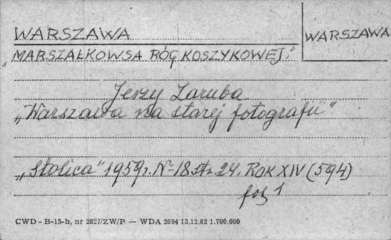 WARSZAWA
WARSZAWA
„MARSZAŁKOWSA RÓG KOSZYKOWEJ."
Jerzy Zaruba
„Warszawa na starej fotografii"
„Stolica" 1959r. Nr 18 str 24. Rok XIV (594)
fot 1
CWD - B-15-b, nr 2827/ZW/P — WDA 2694 13.12.62 1.700.000